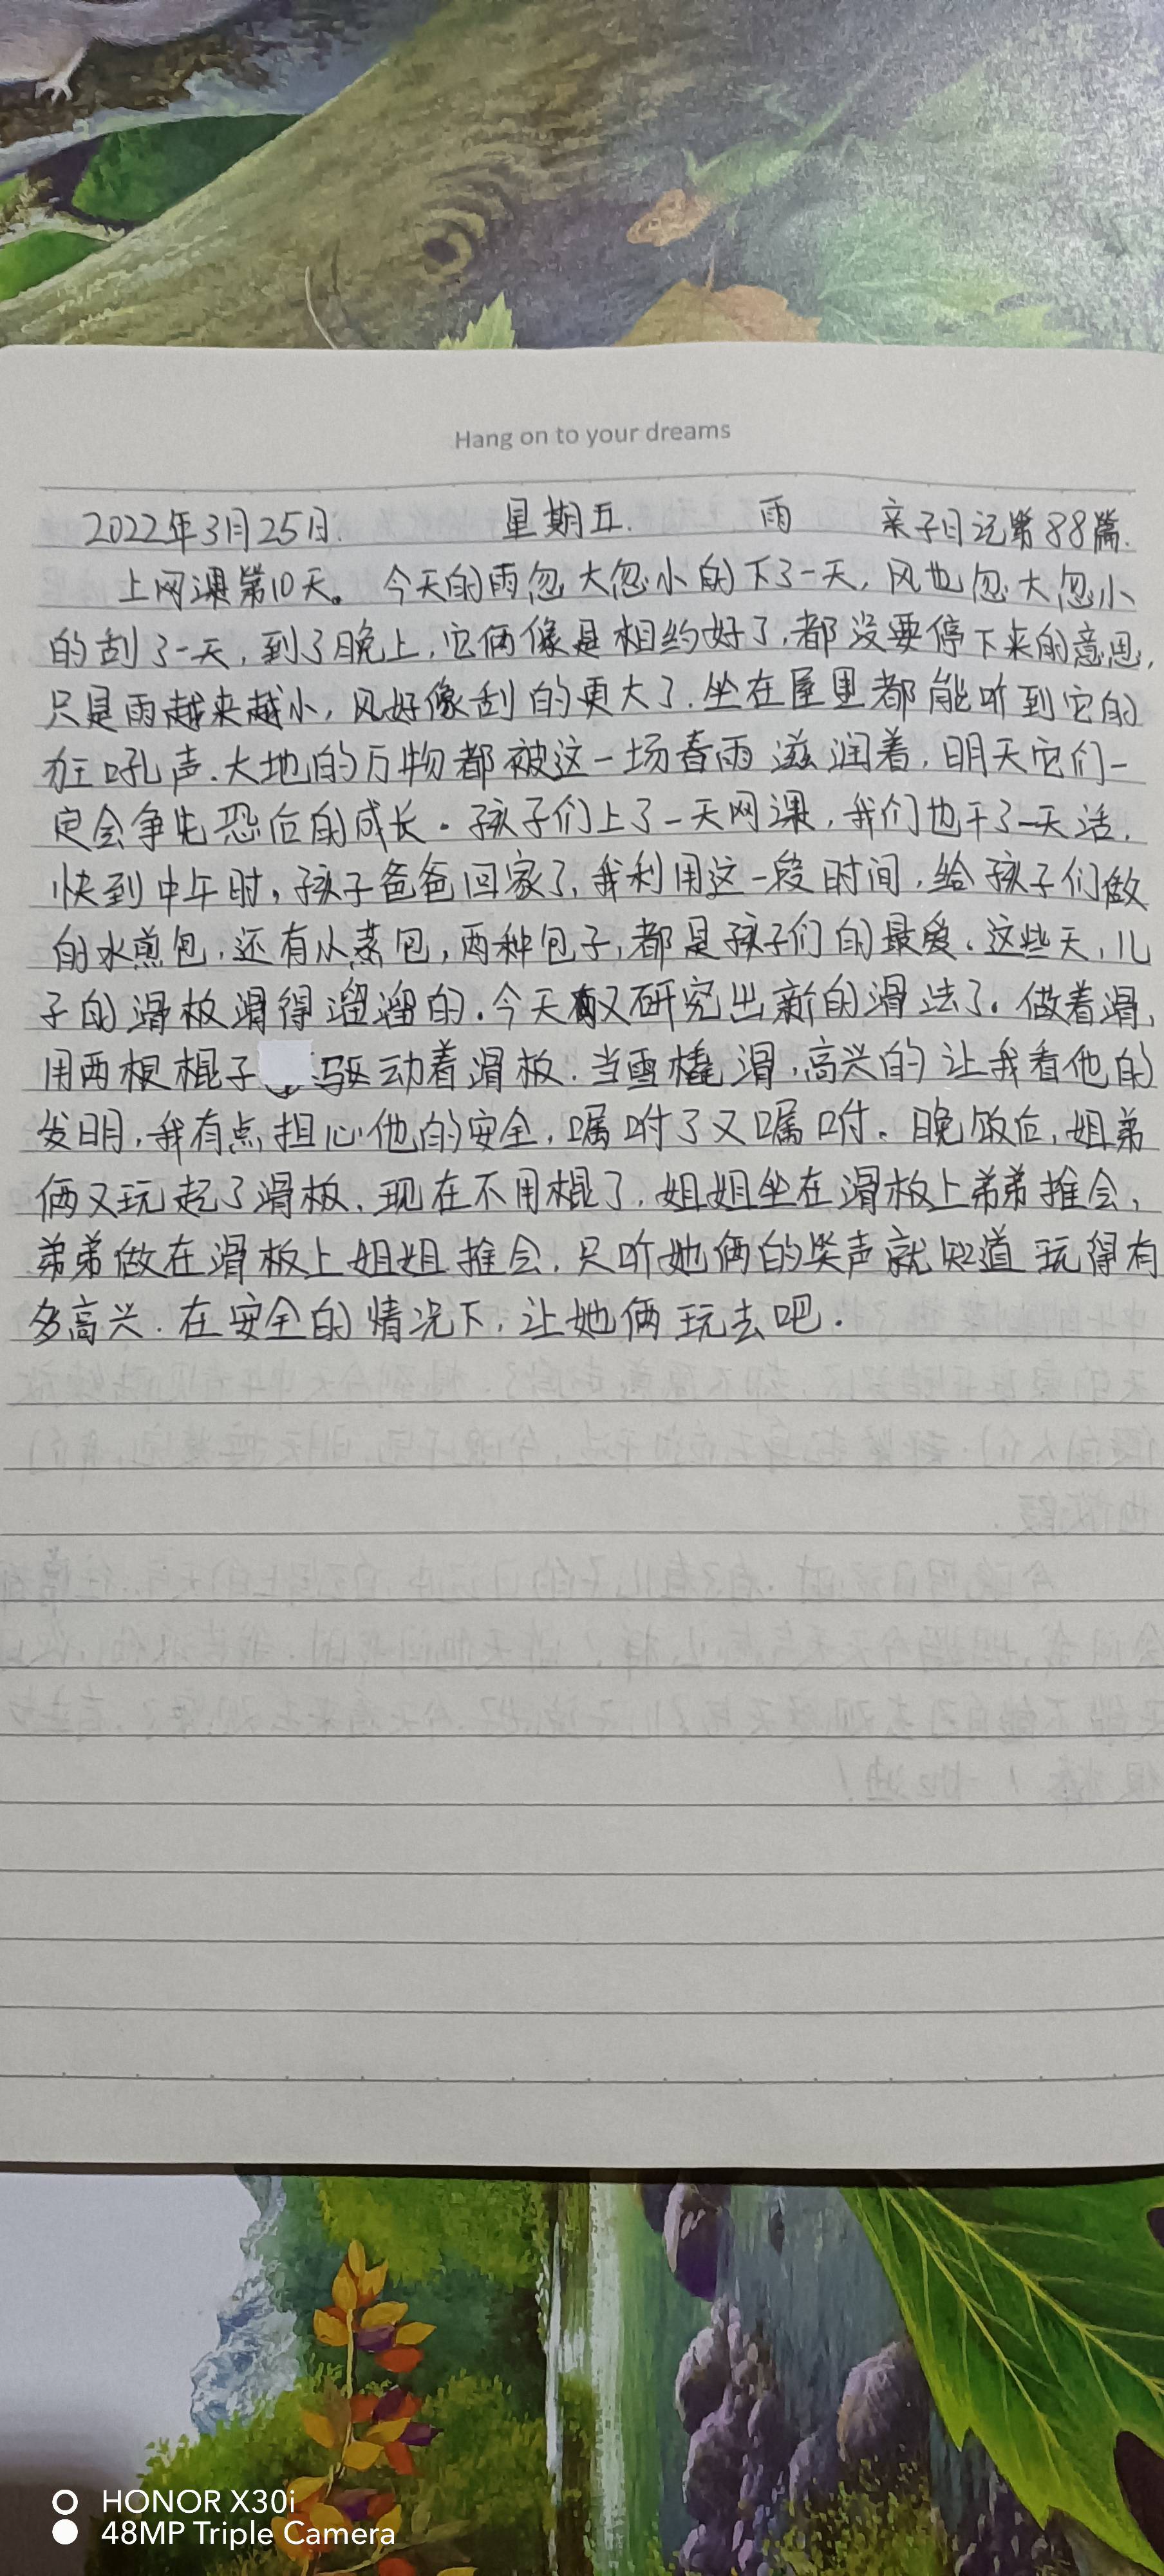 Hang on to your dreams
2022年3月25日. 星期五. 雨 亲子日记第88篇.
上网课第10天。 今天的雨忽大忽小的下了一天, 风也忽大忽小
的刮了一天, 到了晚上, 它俩像是相约好了, 都没要停下来的意思,
只是雨越来越小, 风好像刮的更大了. 坐在屋里都能听到它的
狂吼声. 大地的万物都被这一场春雨滋润着, 明天它们一
定会争先恐后的成长. 孩子们上了一天网课, 我们也干了一天活.
快到中午时, 孩子爸爸回家了, 我利用这一段时间, 给孩子们做
的水煎包, 还有小蒸包, 两种包子, 都是孩子们的最爱. 这些天, 儿
子的滑板滑得溜溜的. 今天又研究出新的滑法了. 做着滑,
用两根棍子 驱动着滑板. 当雪橇滑, 高兴的让我看他的
发明, 我有点担心他的安全, 嘱咐了又嘱咐. 晚饭后, 姐弟
俩又玩起了滑板. 现在不用棍了. 姐姐坐在滑板上弟弟推会,
弟弟做在滑板上姐姐推会. 只听她俩的笑声就知道玩得有
多高兴. 在安全的情况下, 让她俩玩去吧.
HONOR X30i
48MP Triple Camera